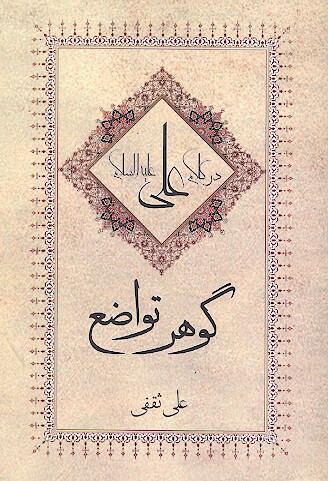 در کلام علی علیه السلام
گوهر تواضع
علی ثقفی